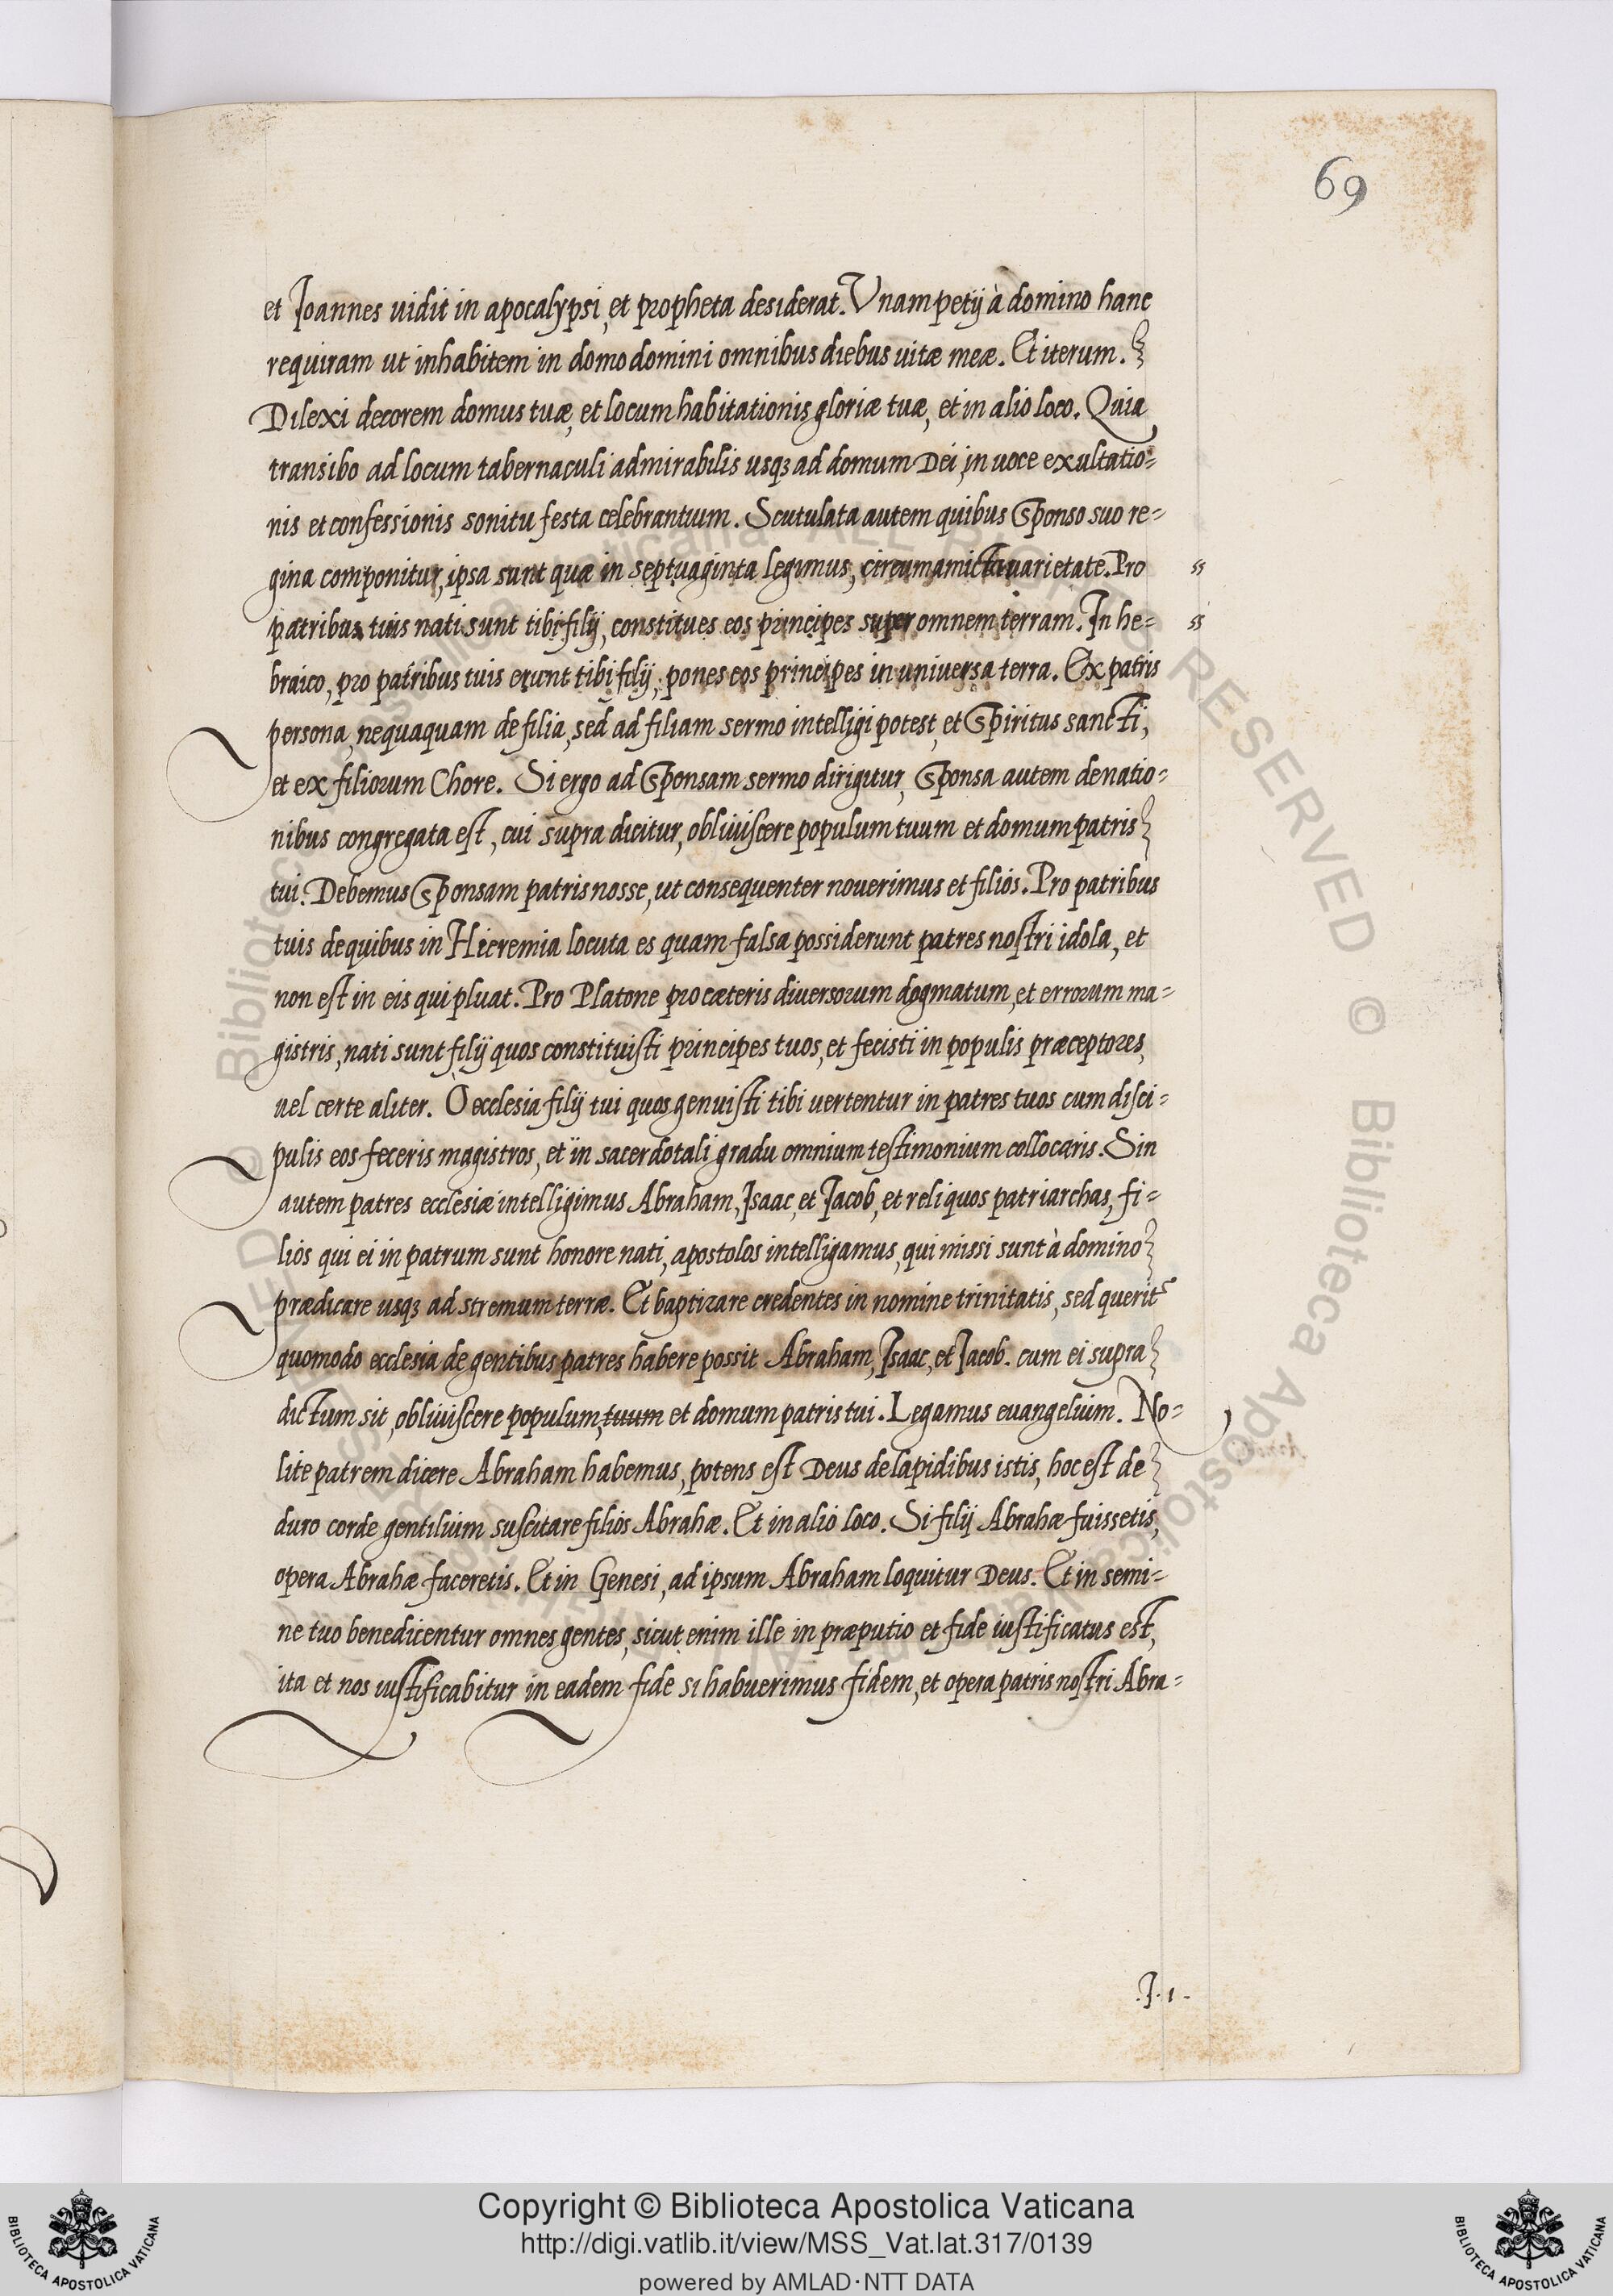 69
et Joannes uidit in apocalypsi, et propheta desiderat. Vnam petij à domino hanc
requiram ut inhabitem in domo domini omnibus diebus uitæ meæ. Et iterum.
Dilexi decorem domus tuæ, et locum habitationis gloriæ tuæ, et in alio loco. Quia
transibo ad locum tabernaculi admirabilis usqȝ ad domum Dei, in uoce exultatio=
nis et confessionis sonitu festa celebrantium. Scutulata autem quibus Sponso suo re=
gina componitur, ipsa sunt quæ in septuaginta legimus, circumamicta uarietate. Pro
patribus tuis nati sunt tibi filij, constitues eos principes super omnem terram. In he=
braico, pro patribus tuis erunt tibi filij, pones eos principes in universa terra. Ex patris
persona, nequaquam de filia, sed ad filiam sermo intelligi potest, et Spiritus sancti,
et ex filiorum Chore. Si ergo ad Sponsam sermo dirigitur, Sponsa autem de natio=
nibus congregata est, cui supra dicitur, obliuiscere populum tuum et domum patris
tui. Debemus Sponsam patris nosse, ut consequenter nouerimus et filios. Pro patribus
tuis de quibus in Hieremia locuta es quam falsa possiderunt patres nostri idola, et
non est in eis qui pluat. Pro Platone pro cæteris diversorum dogmatum, et errorum ma=
gistris, nati sunt filij quos constituisti principes tuos, et fecisti in populis præceptores,
uel certe aliter. O ecclesia filij tui quos genuisti tibi uertentur in patres tuos cum disci=
pulis eos feceris magistros, et in sacerdotali gradu omnium testimonium collocaris. Sin
autem patres ecclesiæ intelligimus Abraham, Isaac, et Jacob, et reliquos patriarchas, fi=
lios qui ei in patrum sunt honore nati, apostolos intelligamus, qui missi sunt à domino
prædicare usqȝ ad stremum terræ. Et baptizare credentes in nomine trinitatis, sed querit᷑
quomodo ecclesia de gentibus patres habere possit Abraham, Isaac, et Jacob. cum ei supra
dictum sit, obliuiscere populum, tuum et domum patris tui. Legamus euangelium. No=
lite patrem dicere Abraham habemus, potens est Deus de lapidibus istis, hoc est de
duro corde gentilium suscitare filios Abrahæ. Et in alio loco. Si filij Abrahæ fuissetis,
opera Abrahæ faceretis. Et in Genesi, ad ipsum Abraham loquitur Deus. Et in semi=
ne tuo benedicentur omnes gentes, sicut enim ille in præputio et fide iustificatus est,
ita et nos iustificabitur in eadem fide si habuerimus fidem, et opera patris nostri Abra=
.J.1.
Copyright © Biblioteca Apostolica Vaticana
http://digi.vatlib.it/view/MSS_Vat.lat.317/0139
powered by AMLAD·NTT DATA